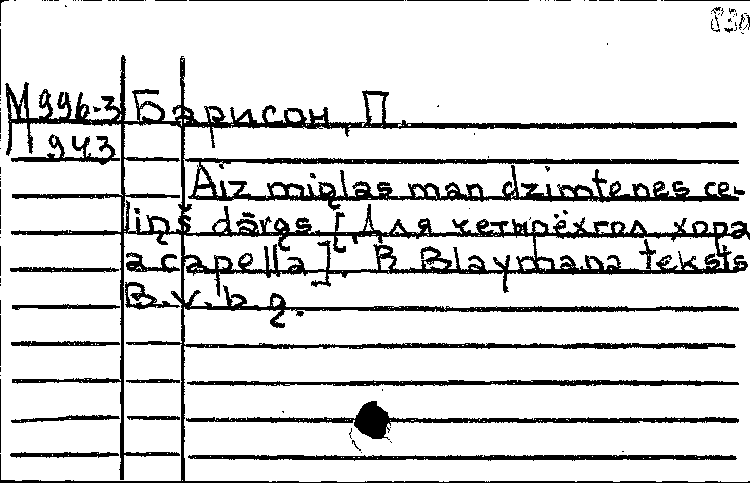 830
М 996-3 Барисон, П.
П 943
Aiz miglas man dzimtenes ce-
liņš dārgs. [Для четырёхгол. хора
a capella]. R. Blaumaņa teksts
B. v., b. g.